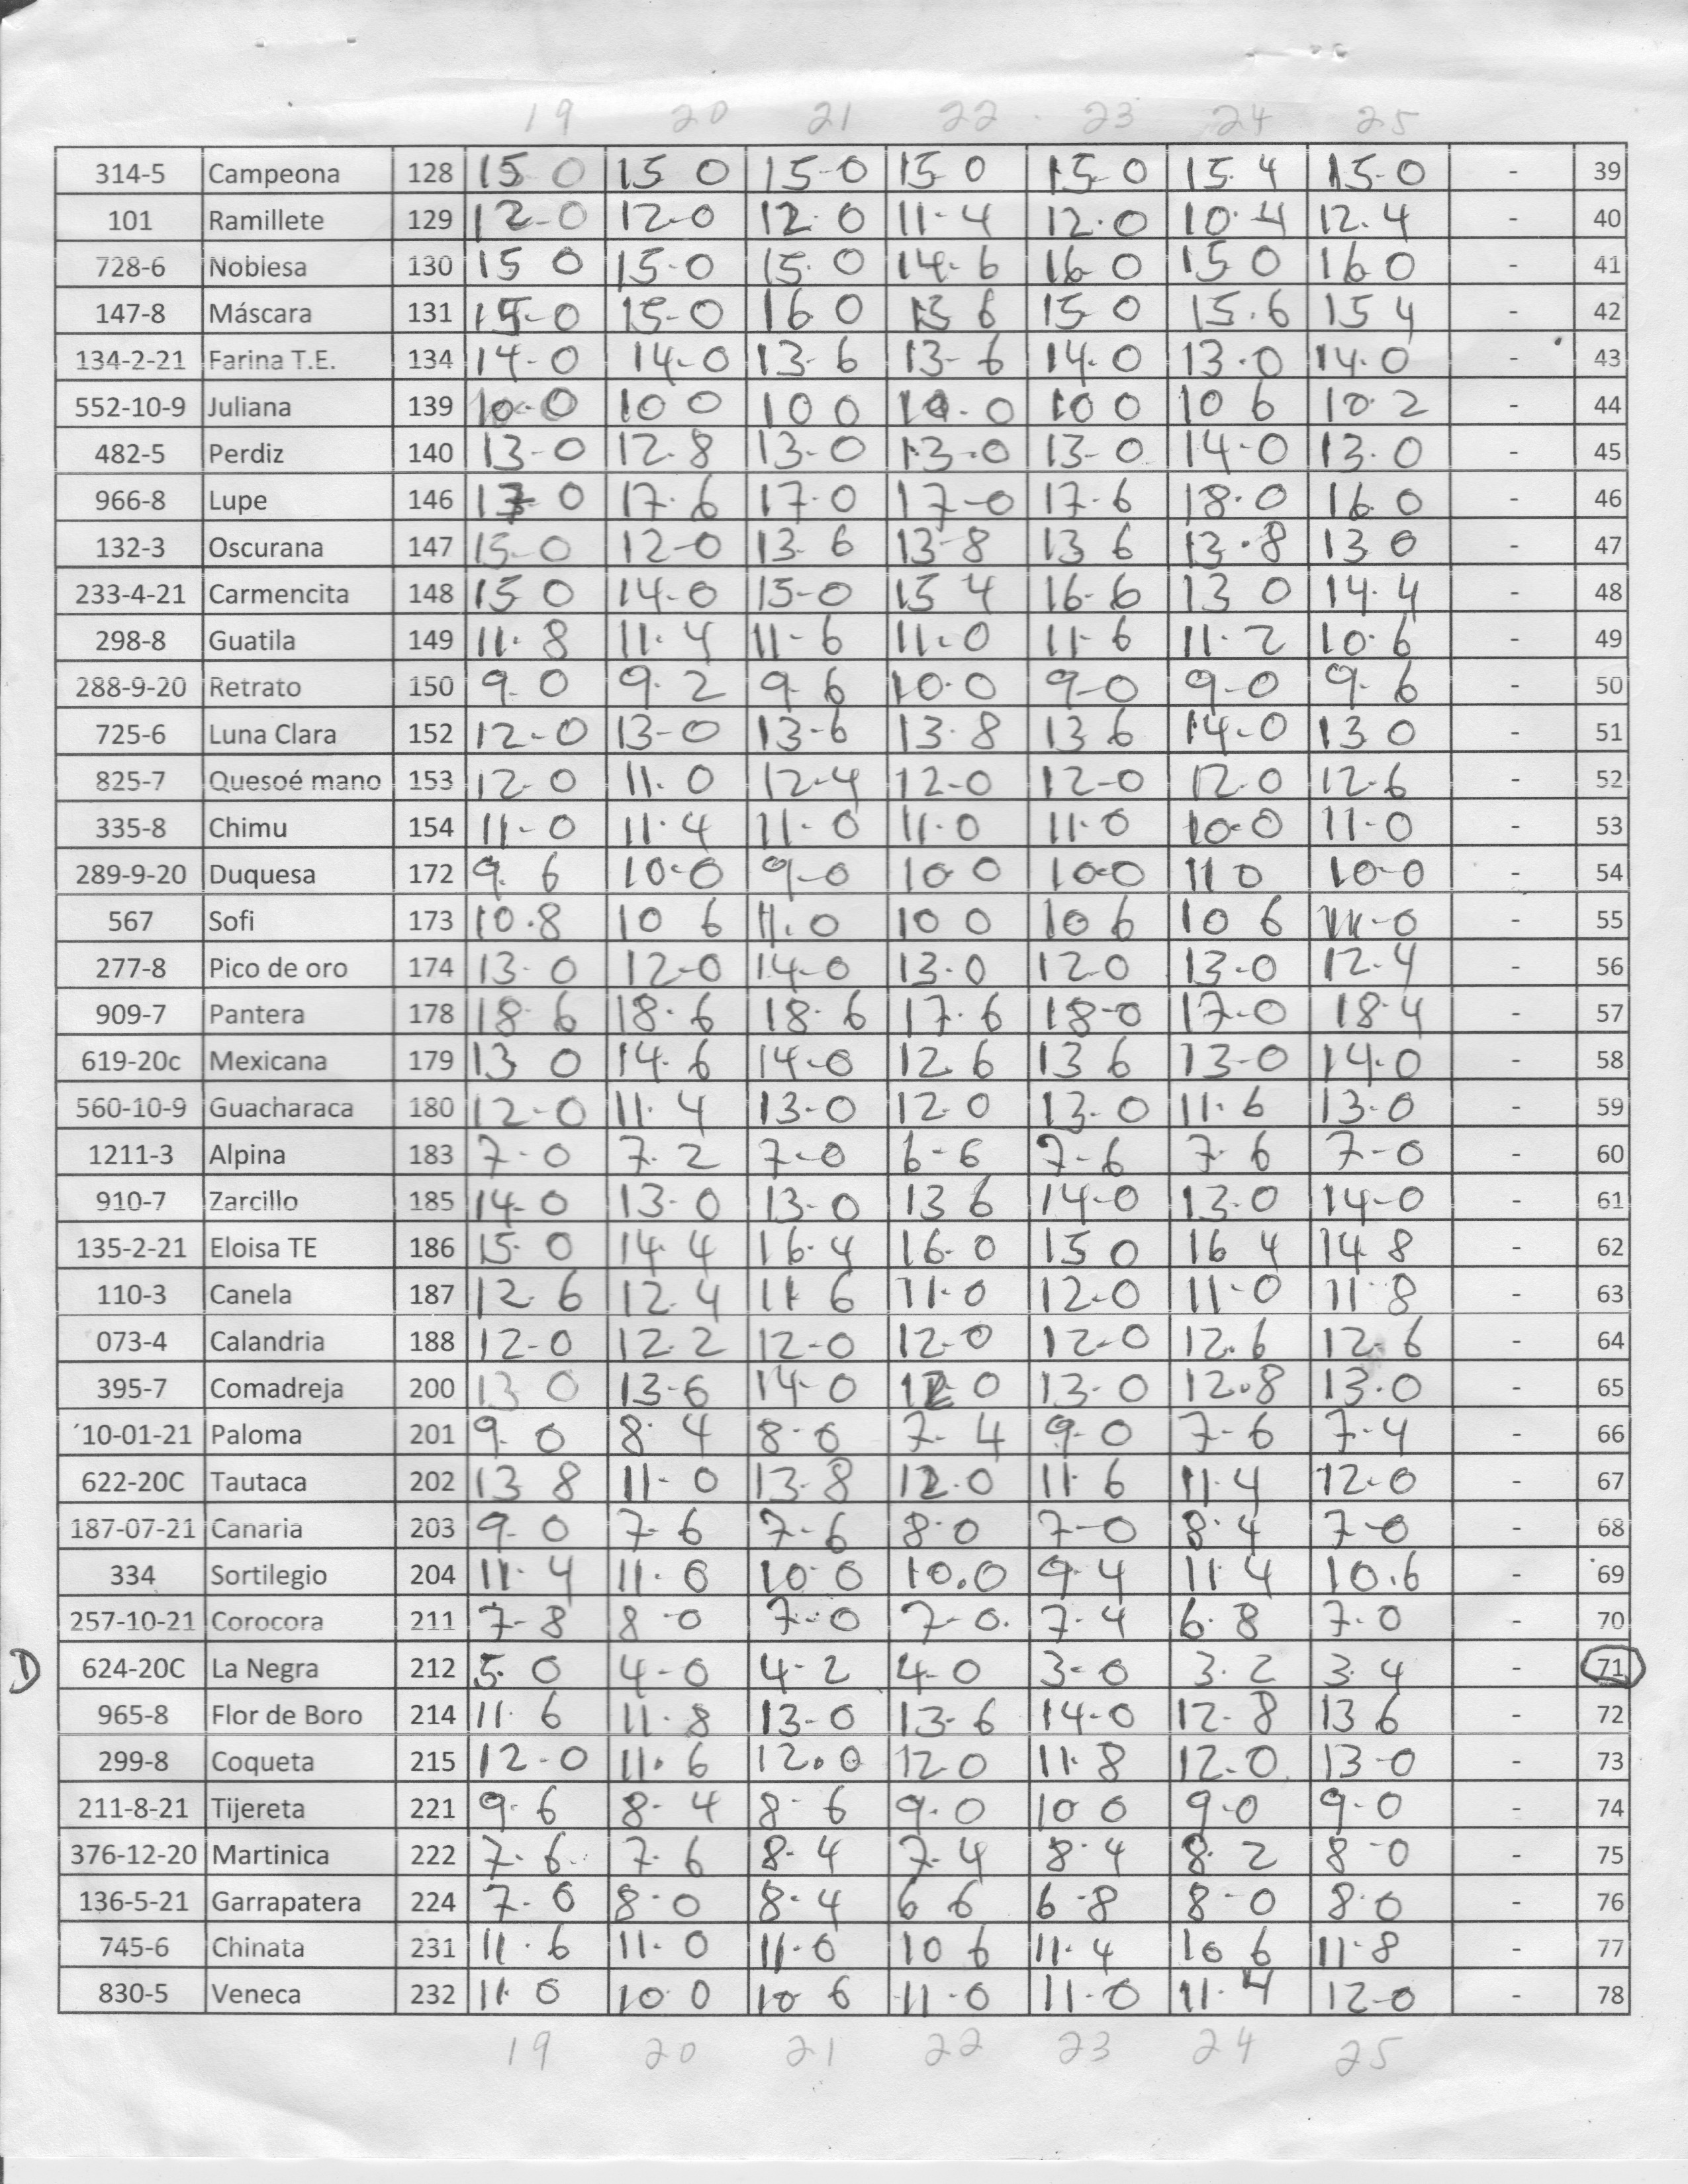 19 20 21 22 23 24 25
314-5 Campeona 128 15 0 15 0 15-0 15 0 15-0 15.4 15-0 - 39
101 Ramillete 129 12-0 12-0 12.0 11-4 12.0 10.4 12.4 - 40
728-6 Nobiesa 130 15 0 15-0 15.0 14-6 16-0 15 0 16 0 - 41
147-8 Máscara 131 15-0 15-0 16 0 13 6 15 0 15.6 15 4 - 42
134-2-21 Farina T.E. 134 14-0 14-0 13-6 13-6 14.0 13.0 14.0 - 43
552-10-9 Juliana 139 10-0 10 0 10 0 10-0 10 0 10 6 10.2 - 44
482-5 Perdiz 140 13-0 12.8 13-0 13.0 13-0 14-0 13.0 - 45
966-8 Lupe 146 17 0 17.6 17.0 17-0 17-6 18.0 16.0 - 46
132-3 Oscurana 147 15-0 12-0 13-6 13-8 13 6 13.8 13 0 - 47
233-4-21 Carmencita 148 15 0 14-0 15-0 15 4 16-6 13 0 14.4 - 48
298-8 Guatila 149 11.8 11.4 11-6 11.0 11-6 11.2 10.6 - 49
288-9-20 Retrato 150 9.0 9.2 9-6 10.0 9-0 9-0 9-6 - 50
725-6 Luna Clara 152 12-0 13-0 13-6 13.8 13 6 14-0 13 0 - 51
825-7 Quesoé mano 153 12-0 11.0 12-4 12-0 12-0 12.0 12-6 - 52
335-8 Chimu 154 11-0 11.4 11-0 11.0 11.0 10-0 11-0 - 53
289-9-20 Duquesa 172 9.6 10-0 9-0 10 0 10-0 11 0 10-0 - 54
567 Sofi 173 10.8 10 6 11.0 10 0 10 6 10 6 11-0 - 55
277-8 Pico de oro 174 13-0 12-0 14-0 13.0 12-0 13-0 12.4 - 56
909-7 Pantera 178 18 6 18.6 18.6 17.6 18-0 17-0 18-4 - 57
619-20c Mexicana 179 13 0 14.6 14-0 12.6 13 6 13-0 14.0 - 58
560-10-9 Guacharaca 180 12-0 11.4 13-0 12 0 13-0 11.6 13-0 - 59
1211-3 Alpina 183 7-0 7.2 7-0 6-6 7-6 7.6 7-0 - 60
910-7 Zarcillo 185 14-0 13-0 13-0 13 6 14-0 13.0 14-0 - 61
135-2-21 Eloisa TE 186 15-0 14.4 16.4 16-0 15 0 16 4 14 8 - 62
110-3 Canela 187 12.6 12.4 11 6 11.0 12-0 11-0 11-8 - 63
073-4 Calandria 188 12-0 12.2 12-0 12-0 12-0 12.6 12-6 - 64
395-7 Comadreja 200 13 0 13-6 14-0 12 0 13-0 12.8 13.0 - 65
´10-01-21 Paloma 201 9-0 8.4 8.0 7-4 9-0 7-6 7-4 - 66
622-20C Tautaca 202 13 8 11-0 13-8 12.0 11-6 11.4 12-0 - 67
187-07-21 Canaria 203 9-0 7-6 7-6 8.0 7-0 8.4 7-0 - 68
334 Sortilegio 204 11.4 11.0 10-0 10.0 9-4 11 4 10.6 - 69
257-10-21 Corocora 211 7-8 8-0 7-0 7-0 7.4 6.8 7.0 - 70
D 624-20C La Negra 212 5.0 4-0 4-2 4-0 3-0 3.2 3.4 - 71
965-8 Flor de Boro 214 11.6 11.8 13-0 13-6 14-0 12-8 13 6 - 72
299-8 Coqueta 215 12-0 11.6 12.0 12 0 11.8 12-0 13-0 - 73
211-8-21 Tijereta 221 9-6 8-4 8-6 9.0 10 0 9-0 9-0 - 74
376-12-20 Martinica 222 7-6 7.6 8-4 7-4 8.4 8.2 8-0 - 75
136-5-21 Garrapatera 224 7.0 8.0 8-4 6 6 6-8 8-0 8.0 - 76
745-6 Chinata 231 11.6 11.0 11.0 10 6 11.4 10 6 11.8 - 77
830-5 Veneca 232 11.0 10 0 10 6 11-0 11-0 11.4 12-0 - 78
19 20 21 22 23 24 25